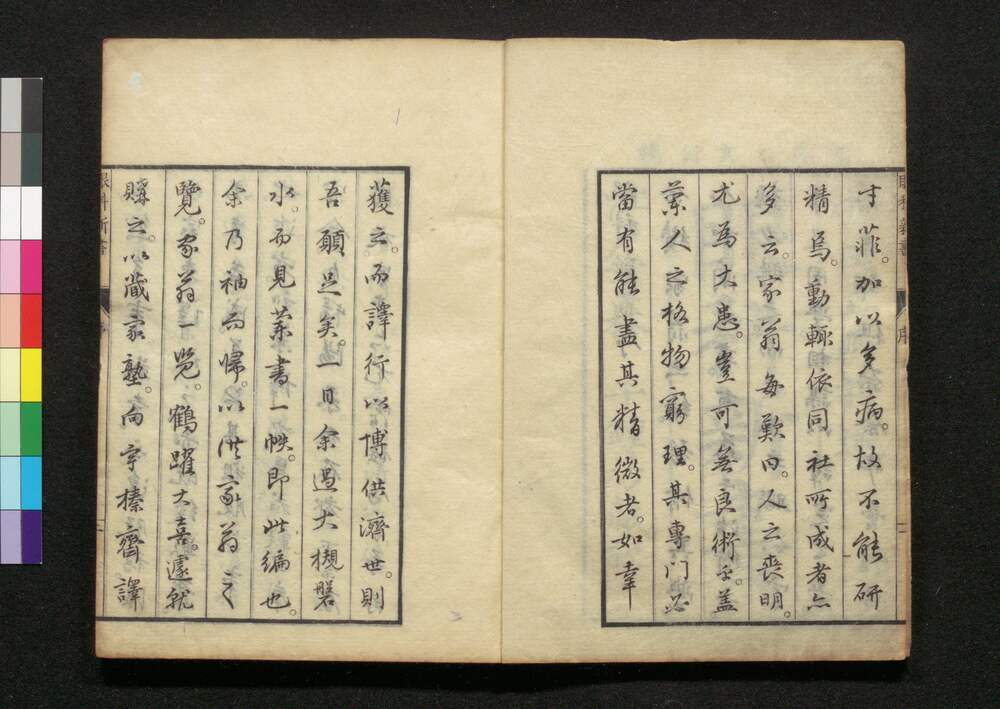 才菲。加以多病。故不能研
精焉。動輒依同社所成者亦
多云。家翁每歎曰。人之喪明。
尤為大患。豈可無良術乎。蓋
蘭人之格物窮理。其專門必
當有能盡其精微者。如幸
獲之。而譯行以博供濟世。則
吾願足矣。一日余過大槻磐
水。而見蘭書一帙。即此編也。
余乃袖而歸。以供家翁之
覽。家翁一覽。鶴躍大喜。遽就
購之。以藏家塾。向宇榛齋譯
眼科新書
序